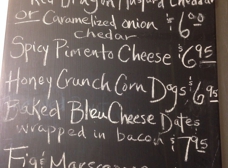 Red Dragon Mustard Cheddar
or Caramelized onion $6.00
chedar
Spicy Pimento Cheese $6.95
Honey Crunch Corn Dogs $6.95
Baked Bleu Cheese Dates
wrapped in bacon $7.95
Fig & Marscapone